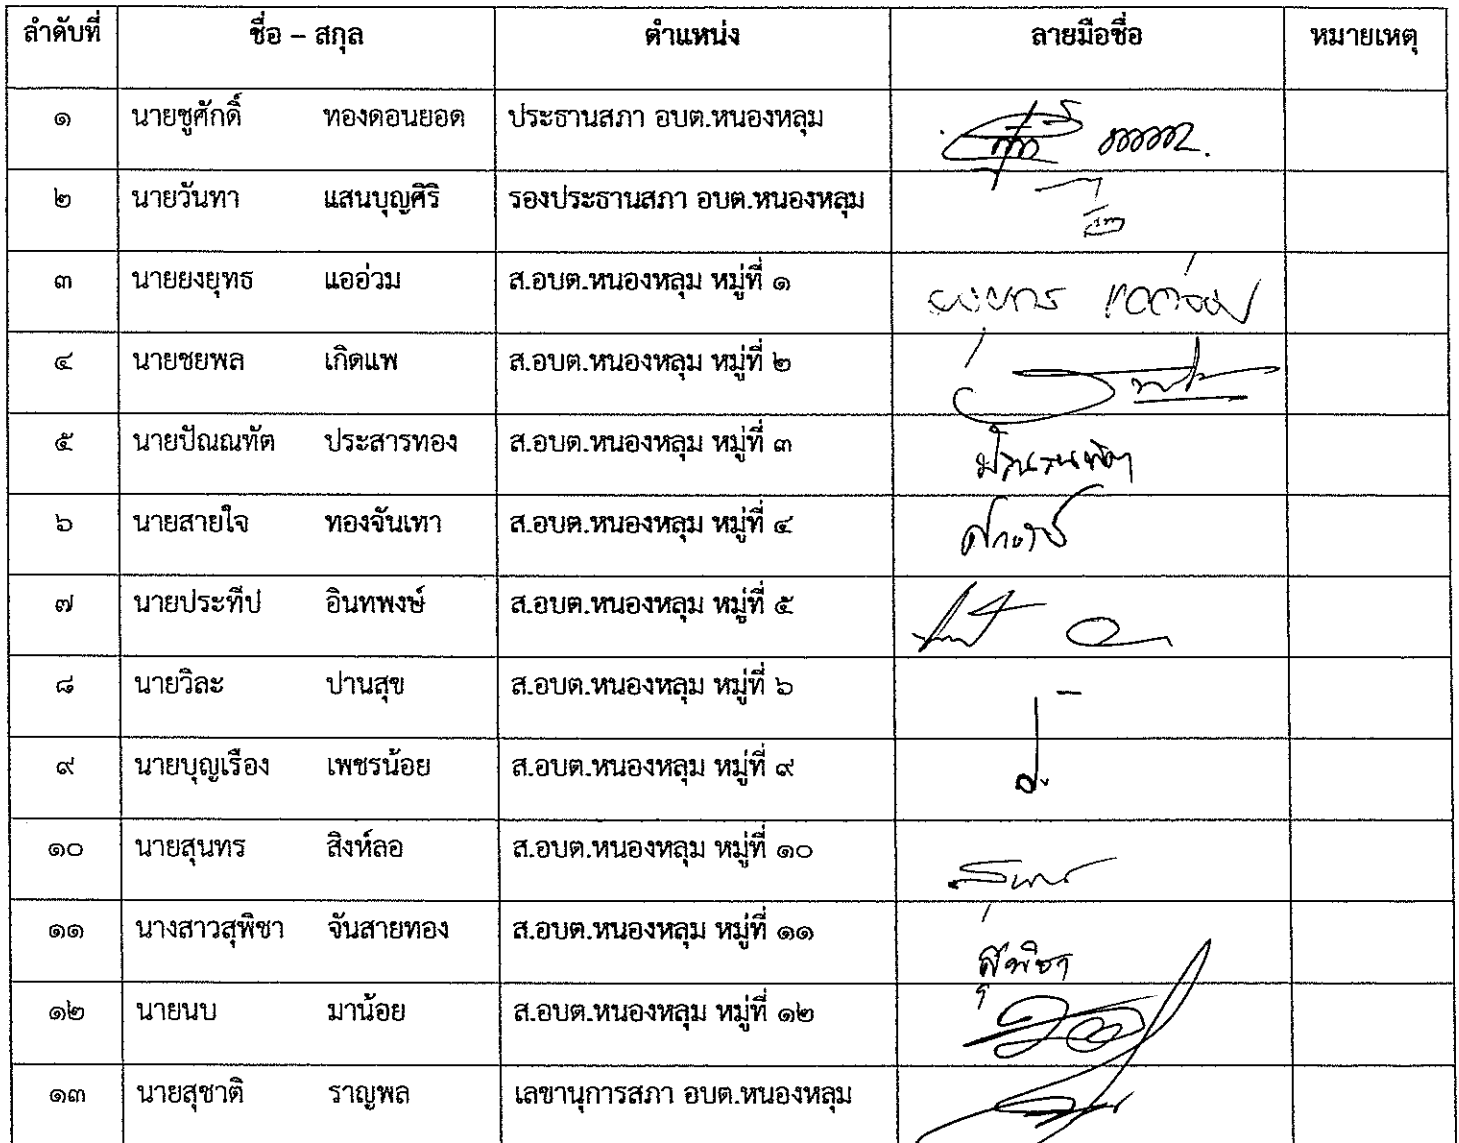 ลำดับที่ ชื่อ – สกุล ตำแหน่ง ลายมือชื่อ หมายเหตุ
๑ นายชูศักดิ์ ทองดอนยอด ประธานสภา อบต.หนองหลุม
๒ นายวันทา แสนบุญศิริ รองประธานสภา อบต.หนองหลุม
๓ นายยงยุทธ แออ่วม ส.อบต.หนองหลุม หมู่ที่ ๑
๔ นายชยพล เกิดแพ ส.อบต.หนองหลุม หมู่ที่ ๒
๕ นายปัณณทัต ประสารทอง ส.อบต.หนองหลุม หมู่ที่ ๓
๖ นายสายใจ ทองจันเทา ส.อบต.หนองหลุม หมู่ที่ ๔
๗ นายประทีป อินทพงษ์ ส.อบต.หนองหลุม หมู่ที่ ๕
๘ นายวิละ ปานสุข ส.อบต.หนองหลุม หมู่ที่ ๖
๙ นายบุญเรือง เพชรน้อย ส.อบต.หนองหลุม หมู่ที่ ๙
๑๐ นายสุนทร สิงห์ลอ ส.อบต.หนองหลุม หมู่ที่ ๑๐
๑๑ นางสาวสุพิชา จันสายทอง ส.อบต.หนองหลุม หมู่ที่ ๑๑ สุพิชา
๑๒ นายนบ มาน้อย ส.อบต.หนองหลุม หมู่ที่ ๑๒
๑๓ นายสุชาติ ราญพล เลขานุการสภา อบต.หนองหลุม